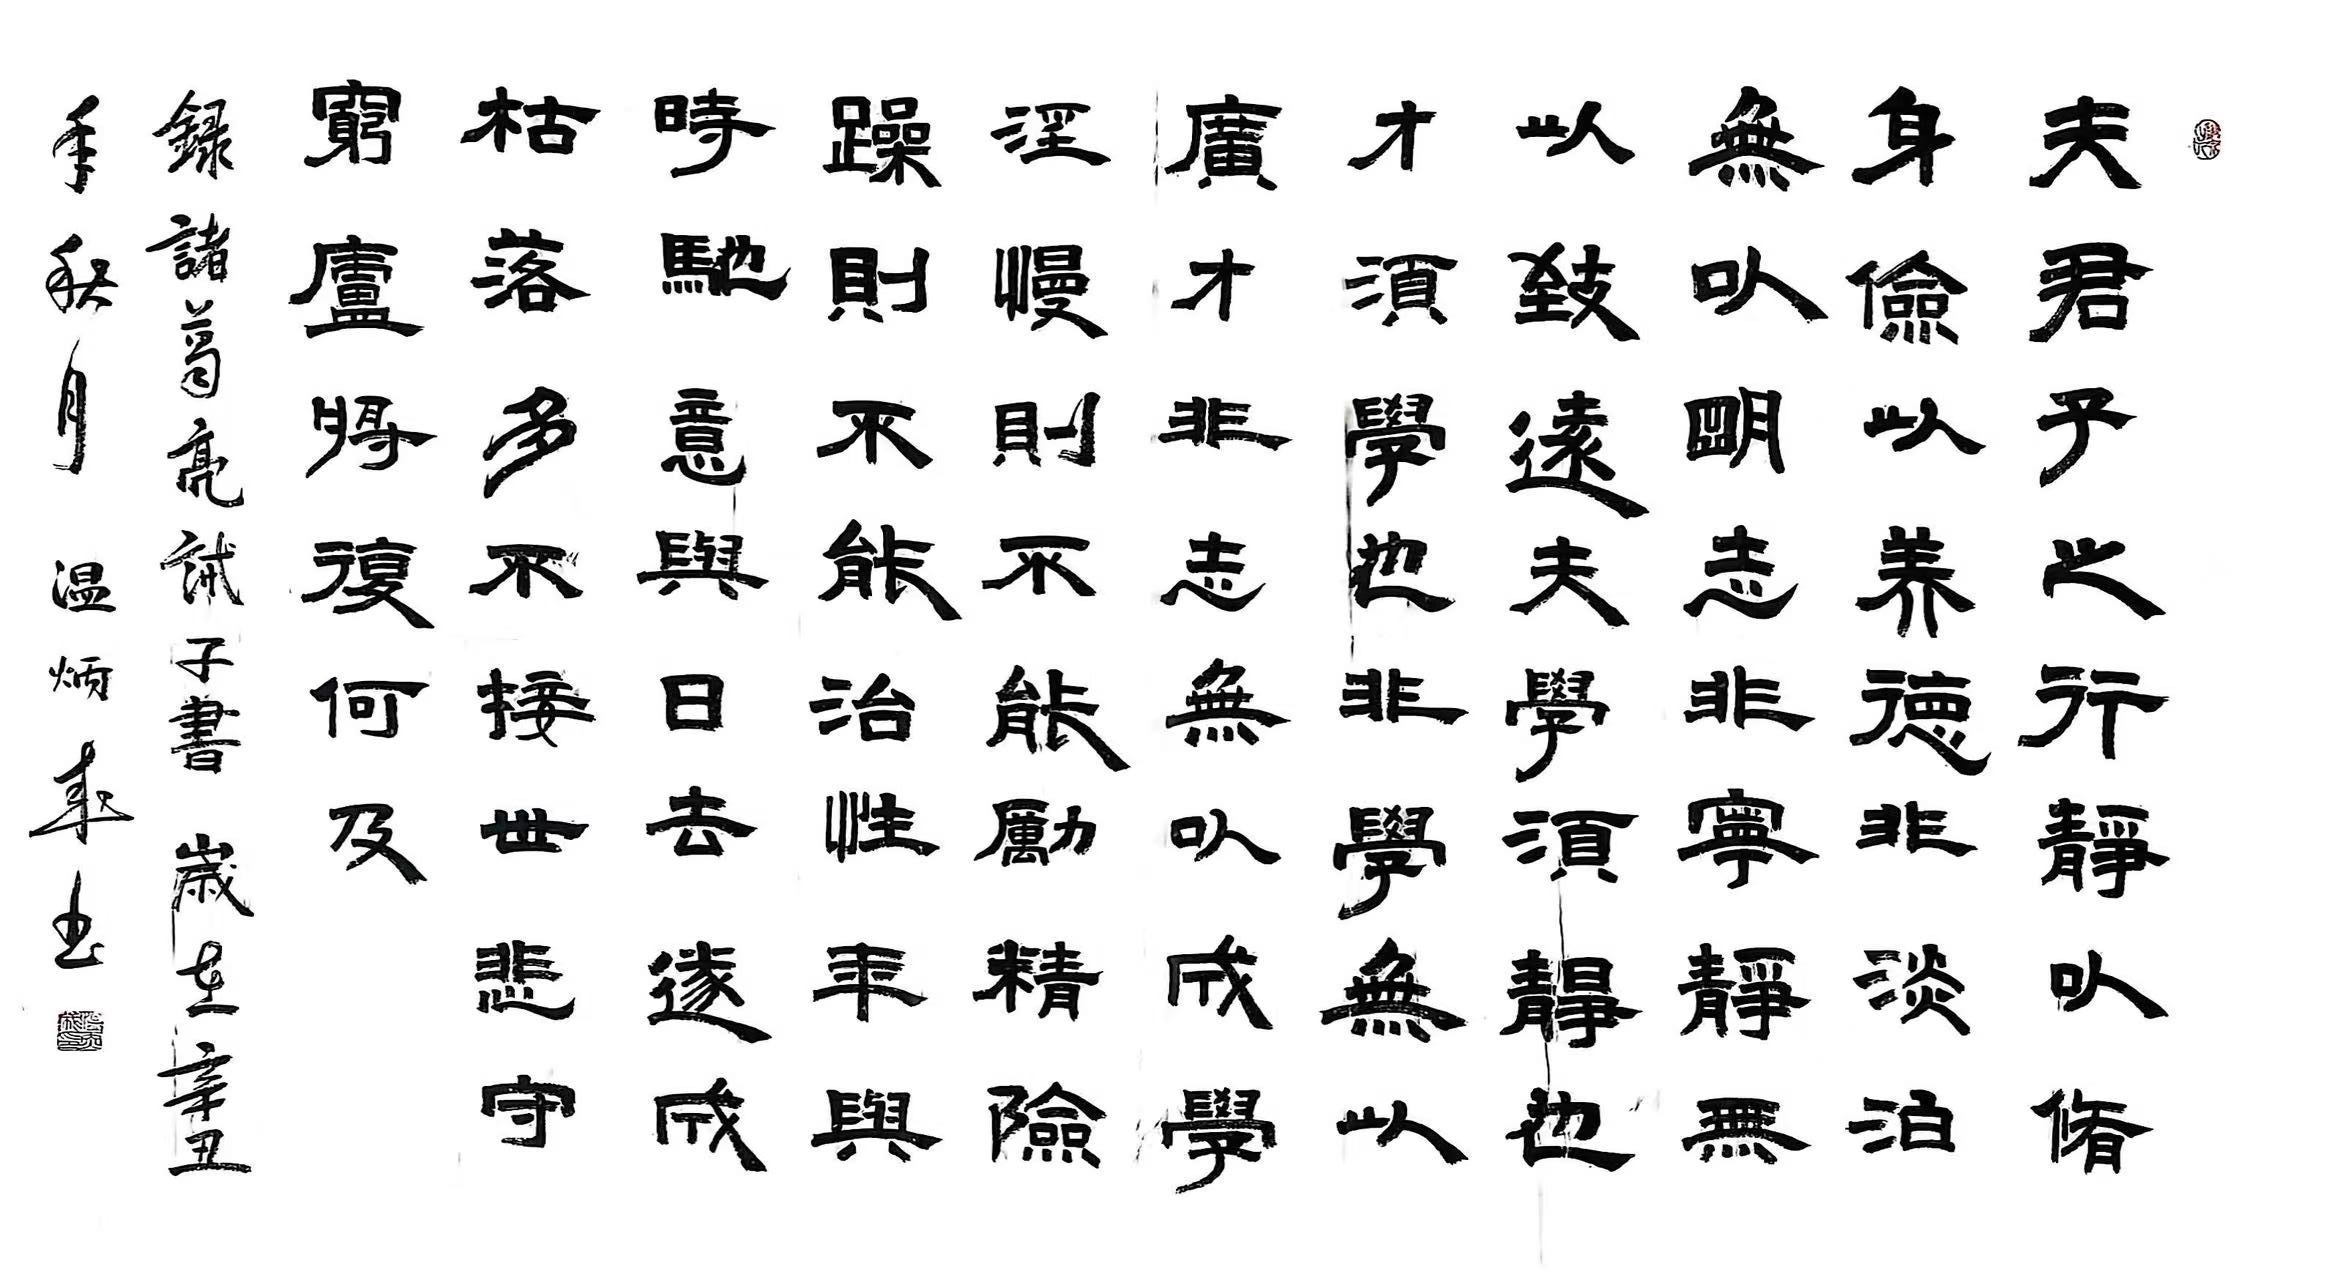 夫君子之行靜以脩
身儉以养德非淡泊
無以明志非寧靜無
以致遠夫學須靜也
才須學也非學無以
廣才非志無以成學
淫慢則不能勵精險
躁則不能治性年與
時馳意與日去遂成
枯落多不接世悲守
窮廬將復何及
錄諸葛亮誡子書 歲在辛丑
年秋月 温炳成书